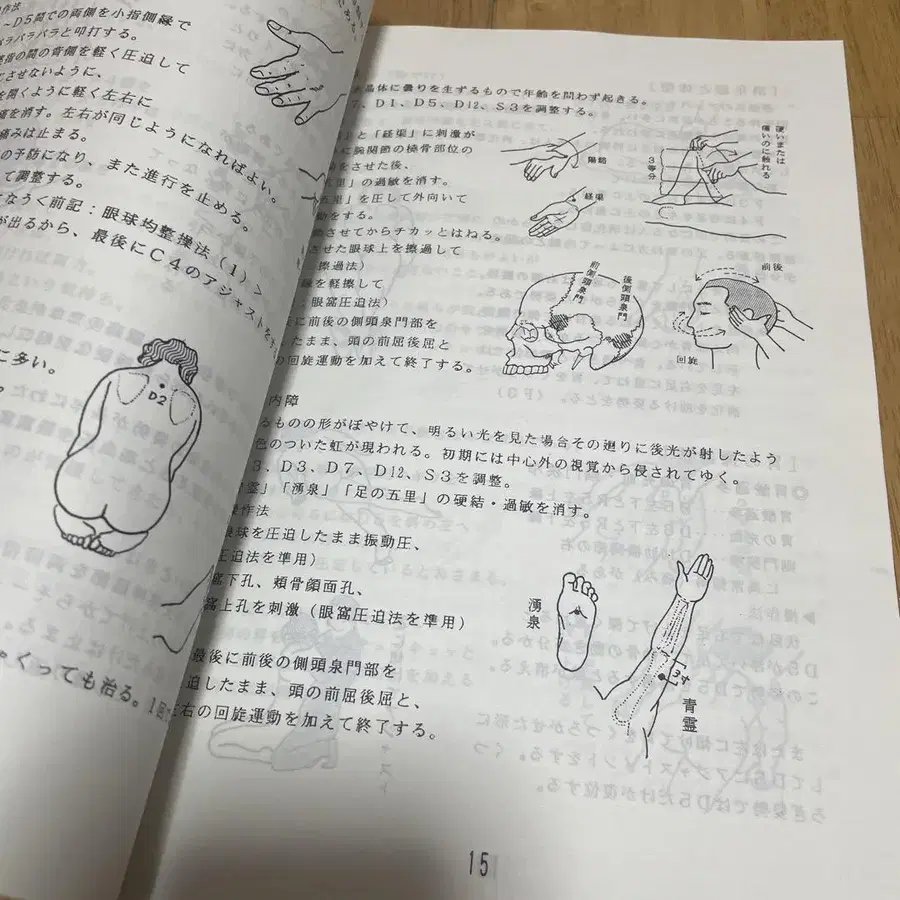 作法
～Ｄ５間での両側を小指側縁で
パラパラパラと叩打する。
指の間の背側を軽く圧迫して
じさせないように、
を開くように軽く左右に
を消す。左右が同じようになればよい。
痛みは止まる。
の予防になり、また進行を止める。
て調整する。
なうく前記：眼球均整操法（１）＞
が出るから、最後にＣ４のアジャストを
に多い。
Ｄ２
ゃくっても治る。１回
晶体に曇りを生ずるもので年齢を問わず起きる。
７、Ｄ１、Ｄ５、Ｄ12、Ｓ３を調整する。
」と「経渠」に刺激が
に腕関節の橈骨部位の
をさせた後、
五里」の過敏を消す。
五里」を圧して外向いて
動をする。
させてからチカッとはねる。
させた眼球上を擦過して
擦過法）
縁を軽擦して
：眼窩圧迫法）
に前後の側頭泉門部を
したまま、頭の前屈後屈と
の回旋運動を加えて終了する。
陽谿
経渠
３等分
硬いまたは
痛いのに触れる
前側頭泉門
後側頭泉門
前後
回旋
内障
るものの形がぼやけて、明るい光を見た場合その廻りに後光が射したよう
色のついた虹が現われる。初期には中心外の視覚から侵されてゆく。
３、Ｄ３、Ｄ７、Ｄ12、Ｓ３を調整。
霊」「湧泉」「足の五里」の硬結・過敏を消す。
操作法
眼球を圧迫したまま振動圧、
圧迫法を準用）
窩下孔、頬骨顔面孔、
窩上孔を刺激（眼窩圧迫法を準用）
最後に前後の側頭泉門部を
迫したまま、頭の前屈後屈と、
左右の回旋運動を加えて終了する。
湧泉
３寸
青霊
15